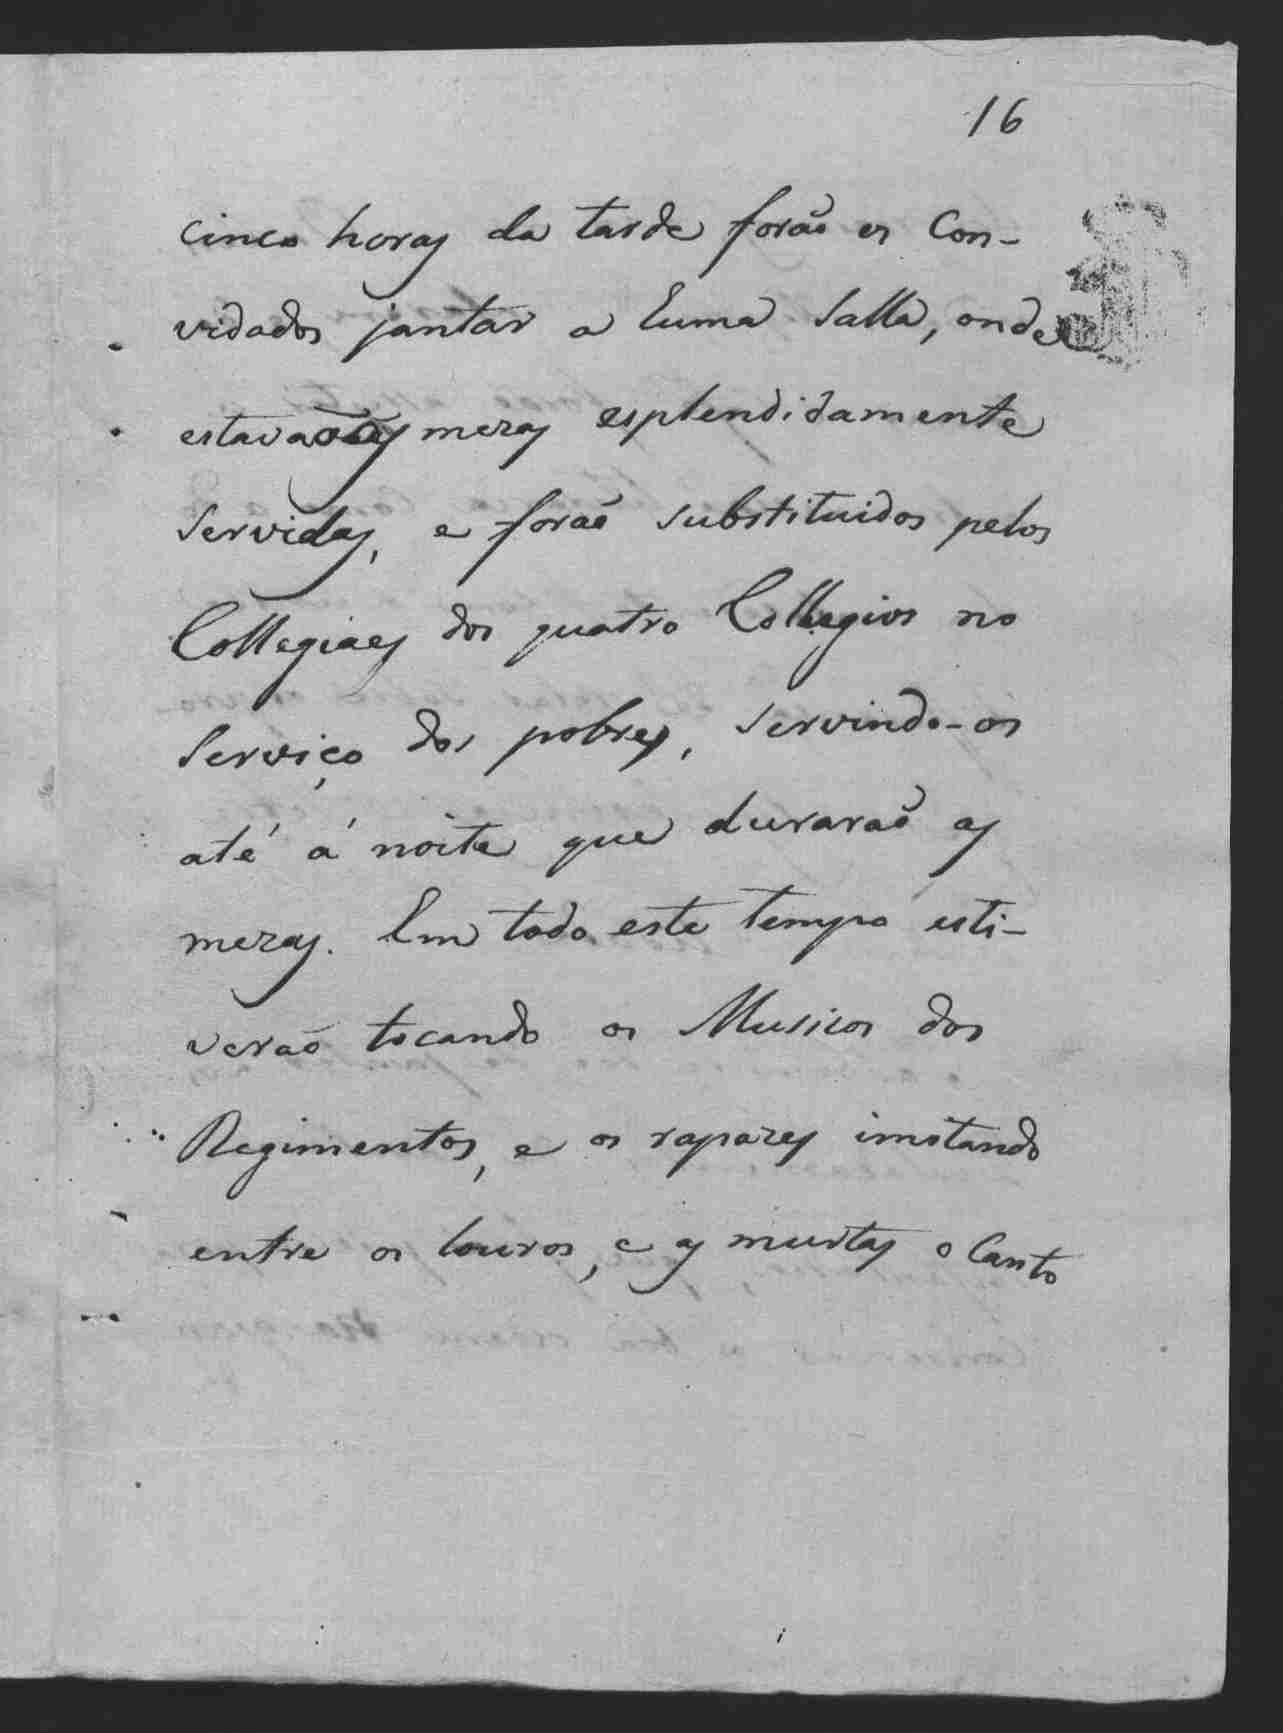 16
cinco horas da tarde forão os Con-
vidados jantar a huma Salla, onde
estavão as mezas esplendidamente
servidas, e forão substituidos pelos
Collegiaes dos quatro Collegios no
serviço dos pobres, servindo-os
até á noite que durarão as
mezas. Em todo este tempo esti-
verão tocando os Musicos dos
Regimentos, e os rapazes imitando
entre os louros, e as murtas o Canto